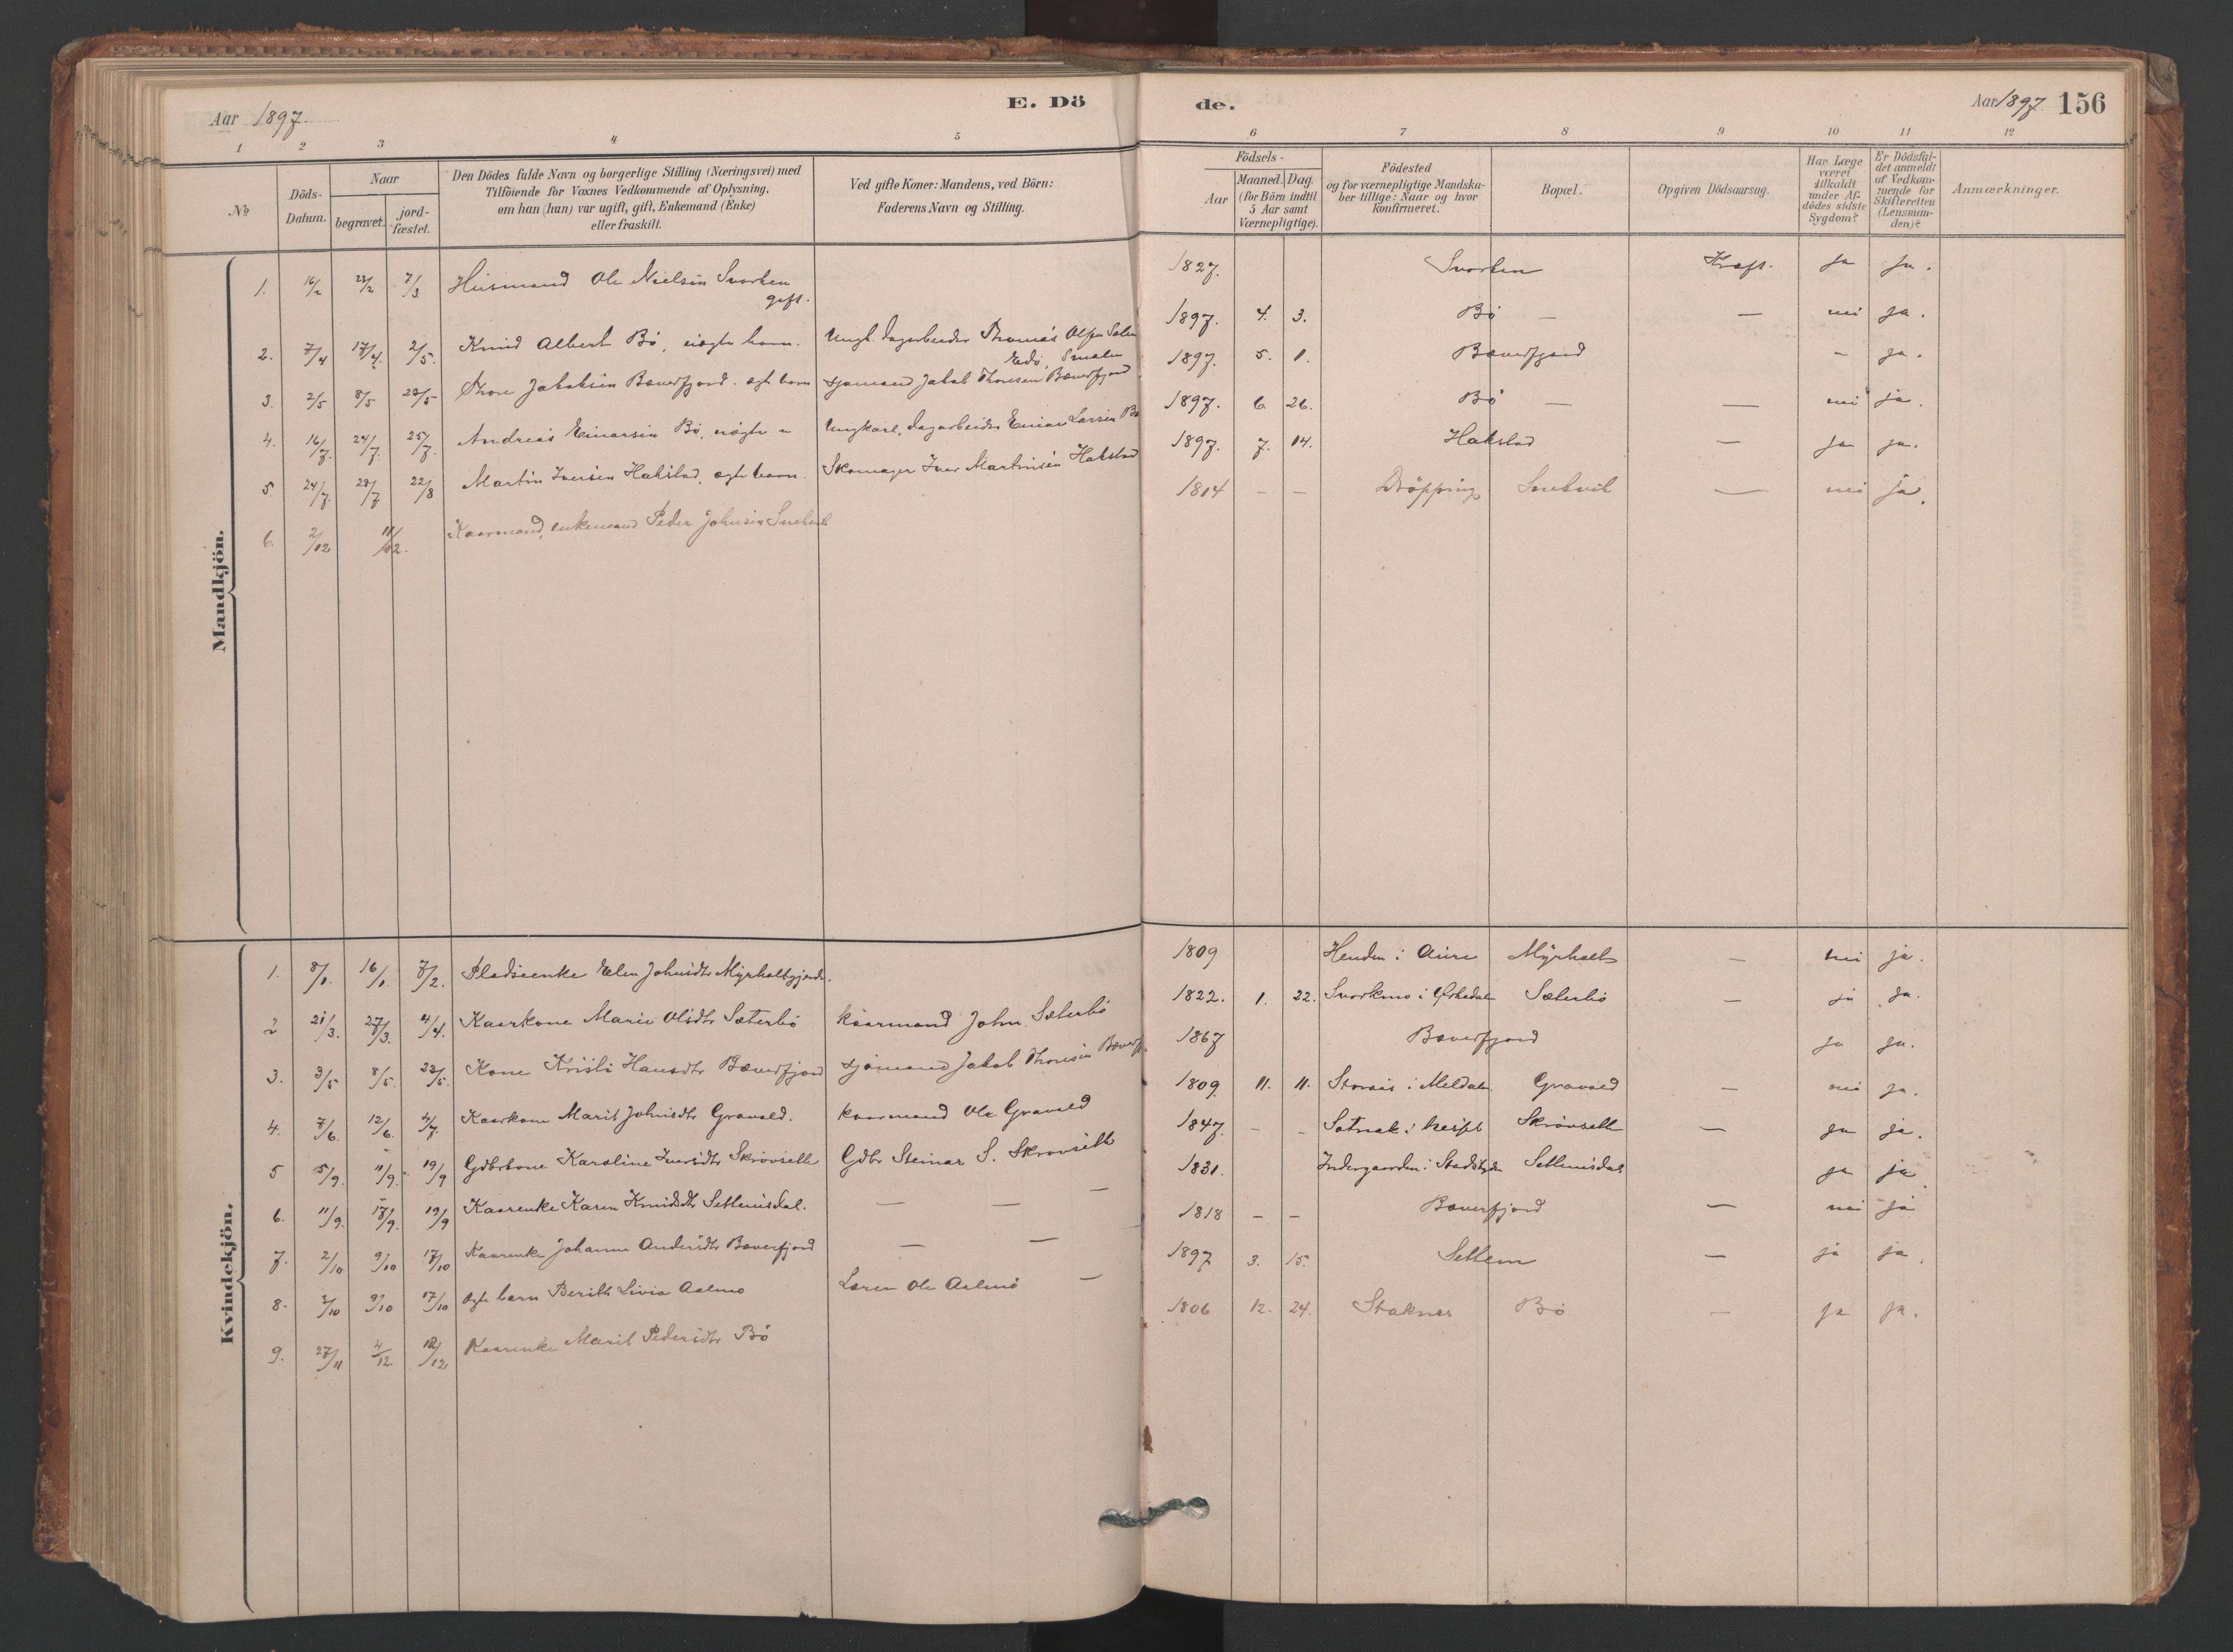 Aar 1897. E. Dö
de. Aar 1897. 156
1 2 3 4 5 6 7 8 9 10 11 12
No
Döds-
Datum.
Naar
begravet.
jord-
fæstet.
Den Dödes fulde Navn og borgerlige Stilling (Næringsvei) med
Tilföiende for Voxnes Vedkommende af Oplysning,
om han (hun) var ugift, gift, Enkemand (Enke)
eller fraskilt.
Ved gifte Koner: Mandens, ved Börn:
Faderens Navn og Stilling.
Födsels-
Aar
Maaned. Dag.
(for Börn indtil
5 Aar samt
Værnepligtige).
Födested
og for værnepligtige Mandska-
ber tillige: Naar og hvor
konfirmeret.
Bopæl.
Opgiven Dödsaarsag.
Har Læge
været
tilkaldt
under Af-
dödes sidste
Sygdom?
Er Dödsfal-
det anmeldt
af Vedkom-
mende for
Skifteretten
(Lensman-
den)?
Anmærkninger.
Mandkjön.
1. 16/2 7/3 Husmand Ole Nielsen Svorken 1827. Svorken Kræft. ja ja.
gift.
2. 7/4 17/4. 2/5. Knud Albert Bö, uægte barn. Ungk. Dagarbeider Thomas Olsen 1897. 4. 3. Bö — — nei ja.
Edö, Smølen
3. 2/5 8/5 23/5 Thore Jakobsen Bæverfjord. ægte barn Sjømand Jakob Thoresen Bæverfjord 1897. 5. 1. Bæverfjord - ja.
4. 16/7. 24/7. 25/7. Andreas Einarsen Bö, uægte " Ungkarl, dagarbeider Einar Larsen Bö 1897. 6. 26. Bö — — nei ja.
5. 24/7. 22/8 Martin Iversen Halstad, ægte barn. Skomager Iver Martinsen Halstad 1897. 7. 14. Halstad — ja ja.
6. 2/12 11/12. Kaarmand, enkemand Peder Johnsen 1814 — — Dröpping — nei ja.
Kvindekjön.
1. 8/1. 16/1. 7/2. Pladsenke Elen Johnsdtr 1809 Henden i Aure Myrholt — nei ja.
2 21/3. 27/3. 4/4. Kaarkone Marie Olsdtr Sæterbö Kaarmand John Sæterbö 1822. 1. 22. Svorkmo i Orkedalen Sæterbö — ja ja.
3. 3/5 8/5. 23/5. Kone Kristi Hansdtr Bæverfjord Sjømand Jakob Thoresen Bæverfj. 1867 Bæverfjord ja ja.
4. 7/6. 12/6. 4/7. Kaarkone Marit Johnsdtr Gravold. Kaarmand Ole Gravold 1809. 11. 11. Storaas i Meldalen Gravold — nei ja.
5 5/9. 11/9. 19/9 Gdbrkone Karoline Iversdtr Skrövseth Gdbr Steinar S. Skrövseth 1847. - - Skrövseth — ja ja.
6. 11/9. 19/9 Kaarenke Karen Knudsdtr Settemsdal. — — — 1831. Indergaarden i Settemsdal ja ja.
7. 2/10 9/10 17/10 Kaarenke Johanne Andersdtr Bæverfjord — — 1818 - - Bæverfjord — nei ja
8. 9/10 17/10 ægte barn Berith Livia Aalmo Lærer Ole Aalmo — 1897 3. 15. Settem — ja ja.
9. 27/11 4/12 12/12 Kaarenke Marit Pedersdtr Bö 1806 12. 24. Bö — ja ja.